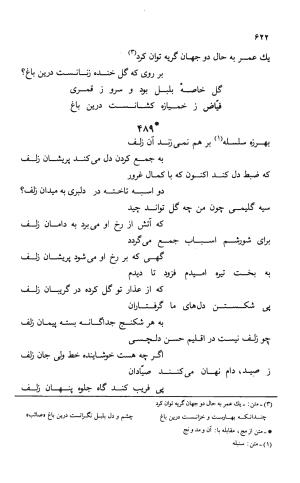 ۶۲۲
یك عمـر به حال دو جهـان گریه توان کرد(۳)
بر روی که گل خنده زنـانـست درین باغ؟
گل خاصهٔ بلبل بود و سرو ز قمـری
فیّاض ز خمیازه کشـانـست درین باغ
*۴۸۹
بهـرزه سلسله(۱) بر هم نمی‌زنـد آن زلف
به جمع کردن دل می‌کند پریشان زلف
که ضبط دل کند اکنون که با کمال غرور
دو اسبه تاخته در دلبری به میدان زلف؟
سیه گلیمی چون من چه گل توانـد چید
که آتش از رخ او می‌برد به دامان زلف
برای شورشم اسبـاب جمـع می‌گردد
گهی که بر رخ او می‌شود پریشان زلف
به بخت تیره امیدم فزود تا دیدم
که از عذار تو گل کرده در گریبان زلف
پی شکستـن دل‌های ما گرفتـاران
به هر شکنج جداگـانـه بسته پیمان زلف
چو زلف نیست در اقلیم حسن دلچسبی
اگر چه هست خوشاینده خط ولی جان زلف
ز صیـد، دام نهان می‌کننـد صیّادان
پی فریب کند گاه جلوه پنهـان زلف
(۳) ـ متن: ـ یك عمر به حال دو جهان گریه توان کرد
چندانـکه بهـارست و خزانـست درین باغ
چشم و دل بلبل نگرانست درین باغ «صائب»
* ـ متن از مج، مقابله با: آن و مد و نج
(۱) ـ متن: سنبله